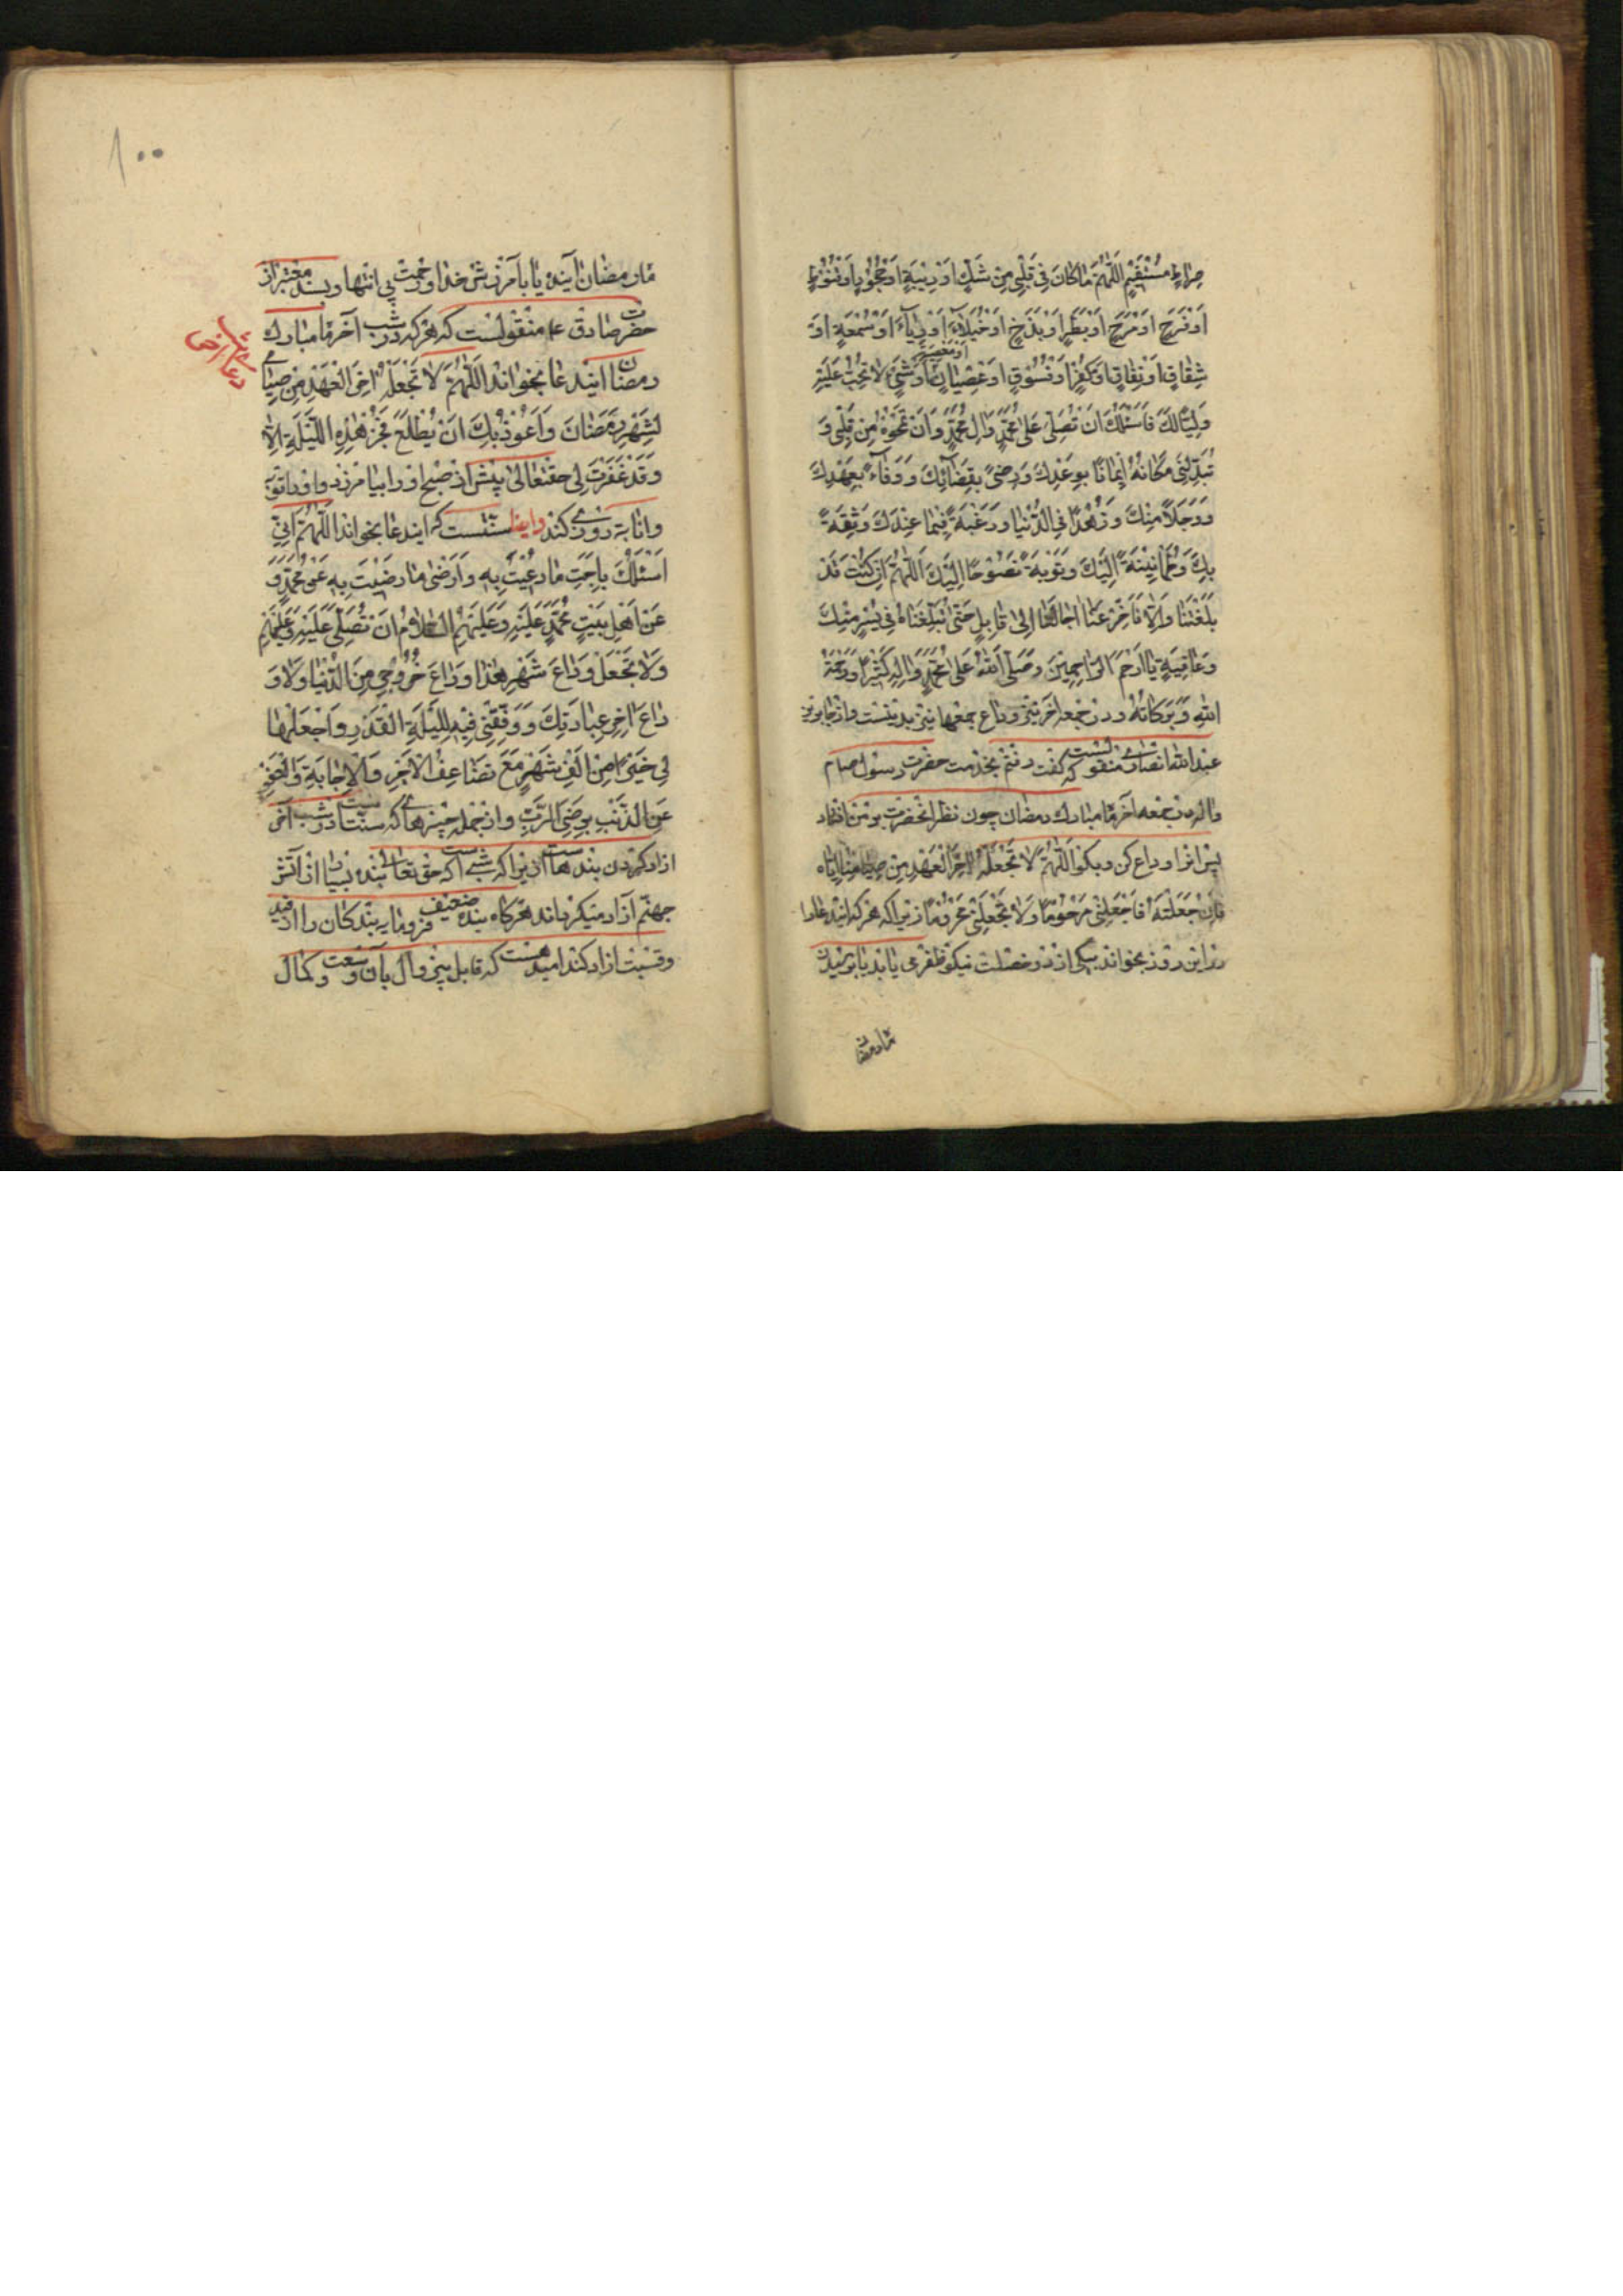 صِراطٍ مُسْتَقيمٍ اَللّهُمَّ مَا كانَ فى قَلْبى مِنْ شَكٍّ اَوْ رِيْبَةٍ اَوْ جُحُودٍ اَوْ قُنُوطٍ
اَوْ فَرَحٍ اَوْ مَرَحٍ اَوْ بَطَرٍ اَوْ بَذَخٍ اَوْ خُيَلاءَ اَوْ رِياءٍ اَوْ سُمْعَةٍ اَوْ
شِقاقٍ اَوْ نِفاقٍ اَوْ كُفْرٍ اَوْ فُسُوقٍ اَوْ عِصْيانٍ اَوْ شَىْءٍ لا تُحِبُّ عَلَيْهِ
وَلِيًّا لَكَ فَاَسْئَلُكَ اَنْ تُصَلِّىَ عَلى مُحَمَّدٍ وَالِ مُحَمَّدٍ وَاَنْ تَمْحُوَهُ مِنْ قَلْبى وَ
تُبَدِّلَنى مَكانَهُ ايمانًا بِوَعْدِكَ وَرِضىً بِقَضائِكَ وَوَفاءً بِعَهْدِكَ
وَوَجَلاً مِنْكَ وَزُهْدًا فِى الدُّنْيا وَرَغْبَةً فيما عِنْدَكَ وَثِقَةً
بِكَ وَطُمَأنينَةً اِلَيْكَ وَتَوْبَةً نَصُوحًا اِلَيْكَ اَللّهُمَّ اِنْ كُنْتَ قَدْ
بَلَّغْتَنا وَاِلاّ فَاَخِّرْ عَنّا اجالَنا اِلى قابِلٍ حَتّى تُبَلِّغَناهُ فى يُسْرٍ مِنْكَ
وَعافِيَةٍ يا اَرْحَمَ الرّاحِمينَ وَصَلَّى اللهُ عَلى مُحَمَّدٍ وَالِهِ كَثيرًا وَرَحْمَةُ
اللهِ وَبَرَكاتُهُ و در جمعه اخر نيز وداع جمعها نيز بد نيست و از جابر بن
عبد الله انصارى منقولست كه گفت رفتم بخدمت حضرت رسول ص
واله در جمعه آخر ماه مبارك رمضان چون نظر آنحضرت بر من افتاد
پس انرا وداع كن و بگو اَللّهُمَّ لا تَجْعَلْهُ اخِرَ الْعَهْدِ مِنْ صِيامِنا اِيّاهُ
فَاِنْ جَعَلْتَهُ فَاجْعَلْنى مَرْحُومًا وَلا تَجْعَلْنى مَحْرُومًا زيرا كه هر كه ايندعا را
در اين روز بخواند بيكى از دو خصلت نيكو ظفر مى يابد يا برسيدن
ماه رمضان آينده يا بآمرزش خدا و رحمت بى انتها و بسند معتبر از
حضرت صادق ع منقولست كه هر كه در شب آخر ماه مبارك
رمضان ايندعا بخواند اَللّهُمَّ لا تَجْعَلْهُ اخِرَ الْعَهْدِ مِنْ صِيامى
لِشَهْرِ رَمَضانَ وَاَعُوذُ بِكَ اَنْ يُطْلَعَ فَجْرُ هذِهِ اللَّيْلَةِ اِلاّ
وَقَدْ غَفَرْتَ لى حقتعالى پيش از صبح او را بيامرزد و او را توبه
وانابه روزى كند وايضا سنتست كه ايندعا بخواند اَللّهُمَّ اِنّى
اَسْئَلُكَ بِاَحَبِّ ما دُعيتَ بِهِ وَاَرْضى ما رَضيتَ بِهِ عَنْ مُحَمَّدٍ وَ
عَنْ اَهْلِ بَيْتِ مُحَمَّدٍ عَلَيْهِ وَعَلَيْهِمُ السَّلامُ اَنْ تُصَلِّىَ عَلَيْهِ وَعَلَيْهِمْ
وَلا تَجْعَلْ وَداعَ شَهْرى هذا وَداعَ خُرُوجى مِنَ الدُّنْيا وَلا وَ
داعَ اخِرِ عِبادَتِكَ وَوَفِّقْنى فيهِ لِلَيْلَةِ الْقَدْرِ وَاجْعَلْها
لى خَيْرًا مِنْ اَلْفِ شَهْرٍ مَعَ تَضاعُفِ الاَجْرِ وَالاِجابَةِ وَالْعَفْوِ
عَنِ الذَّنْبِ بِرِضَى الرَّبِّ و از جمله چيزهائى كه سنتست در شب آخر
ازاد كردن بندهاست زيرا كه شبى است كه حق تعالى بنده بسيار از آتش
جهنم آزاد ميگرداند هرگاه بنده ضعيف فرومايه بندگان را از قيد
رقيت ازاد كند اميد هست كه قابل بيزوال بآن وسعت و كمال